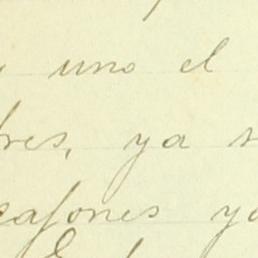 uno el
res, ya
cajones ya